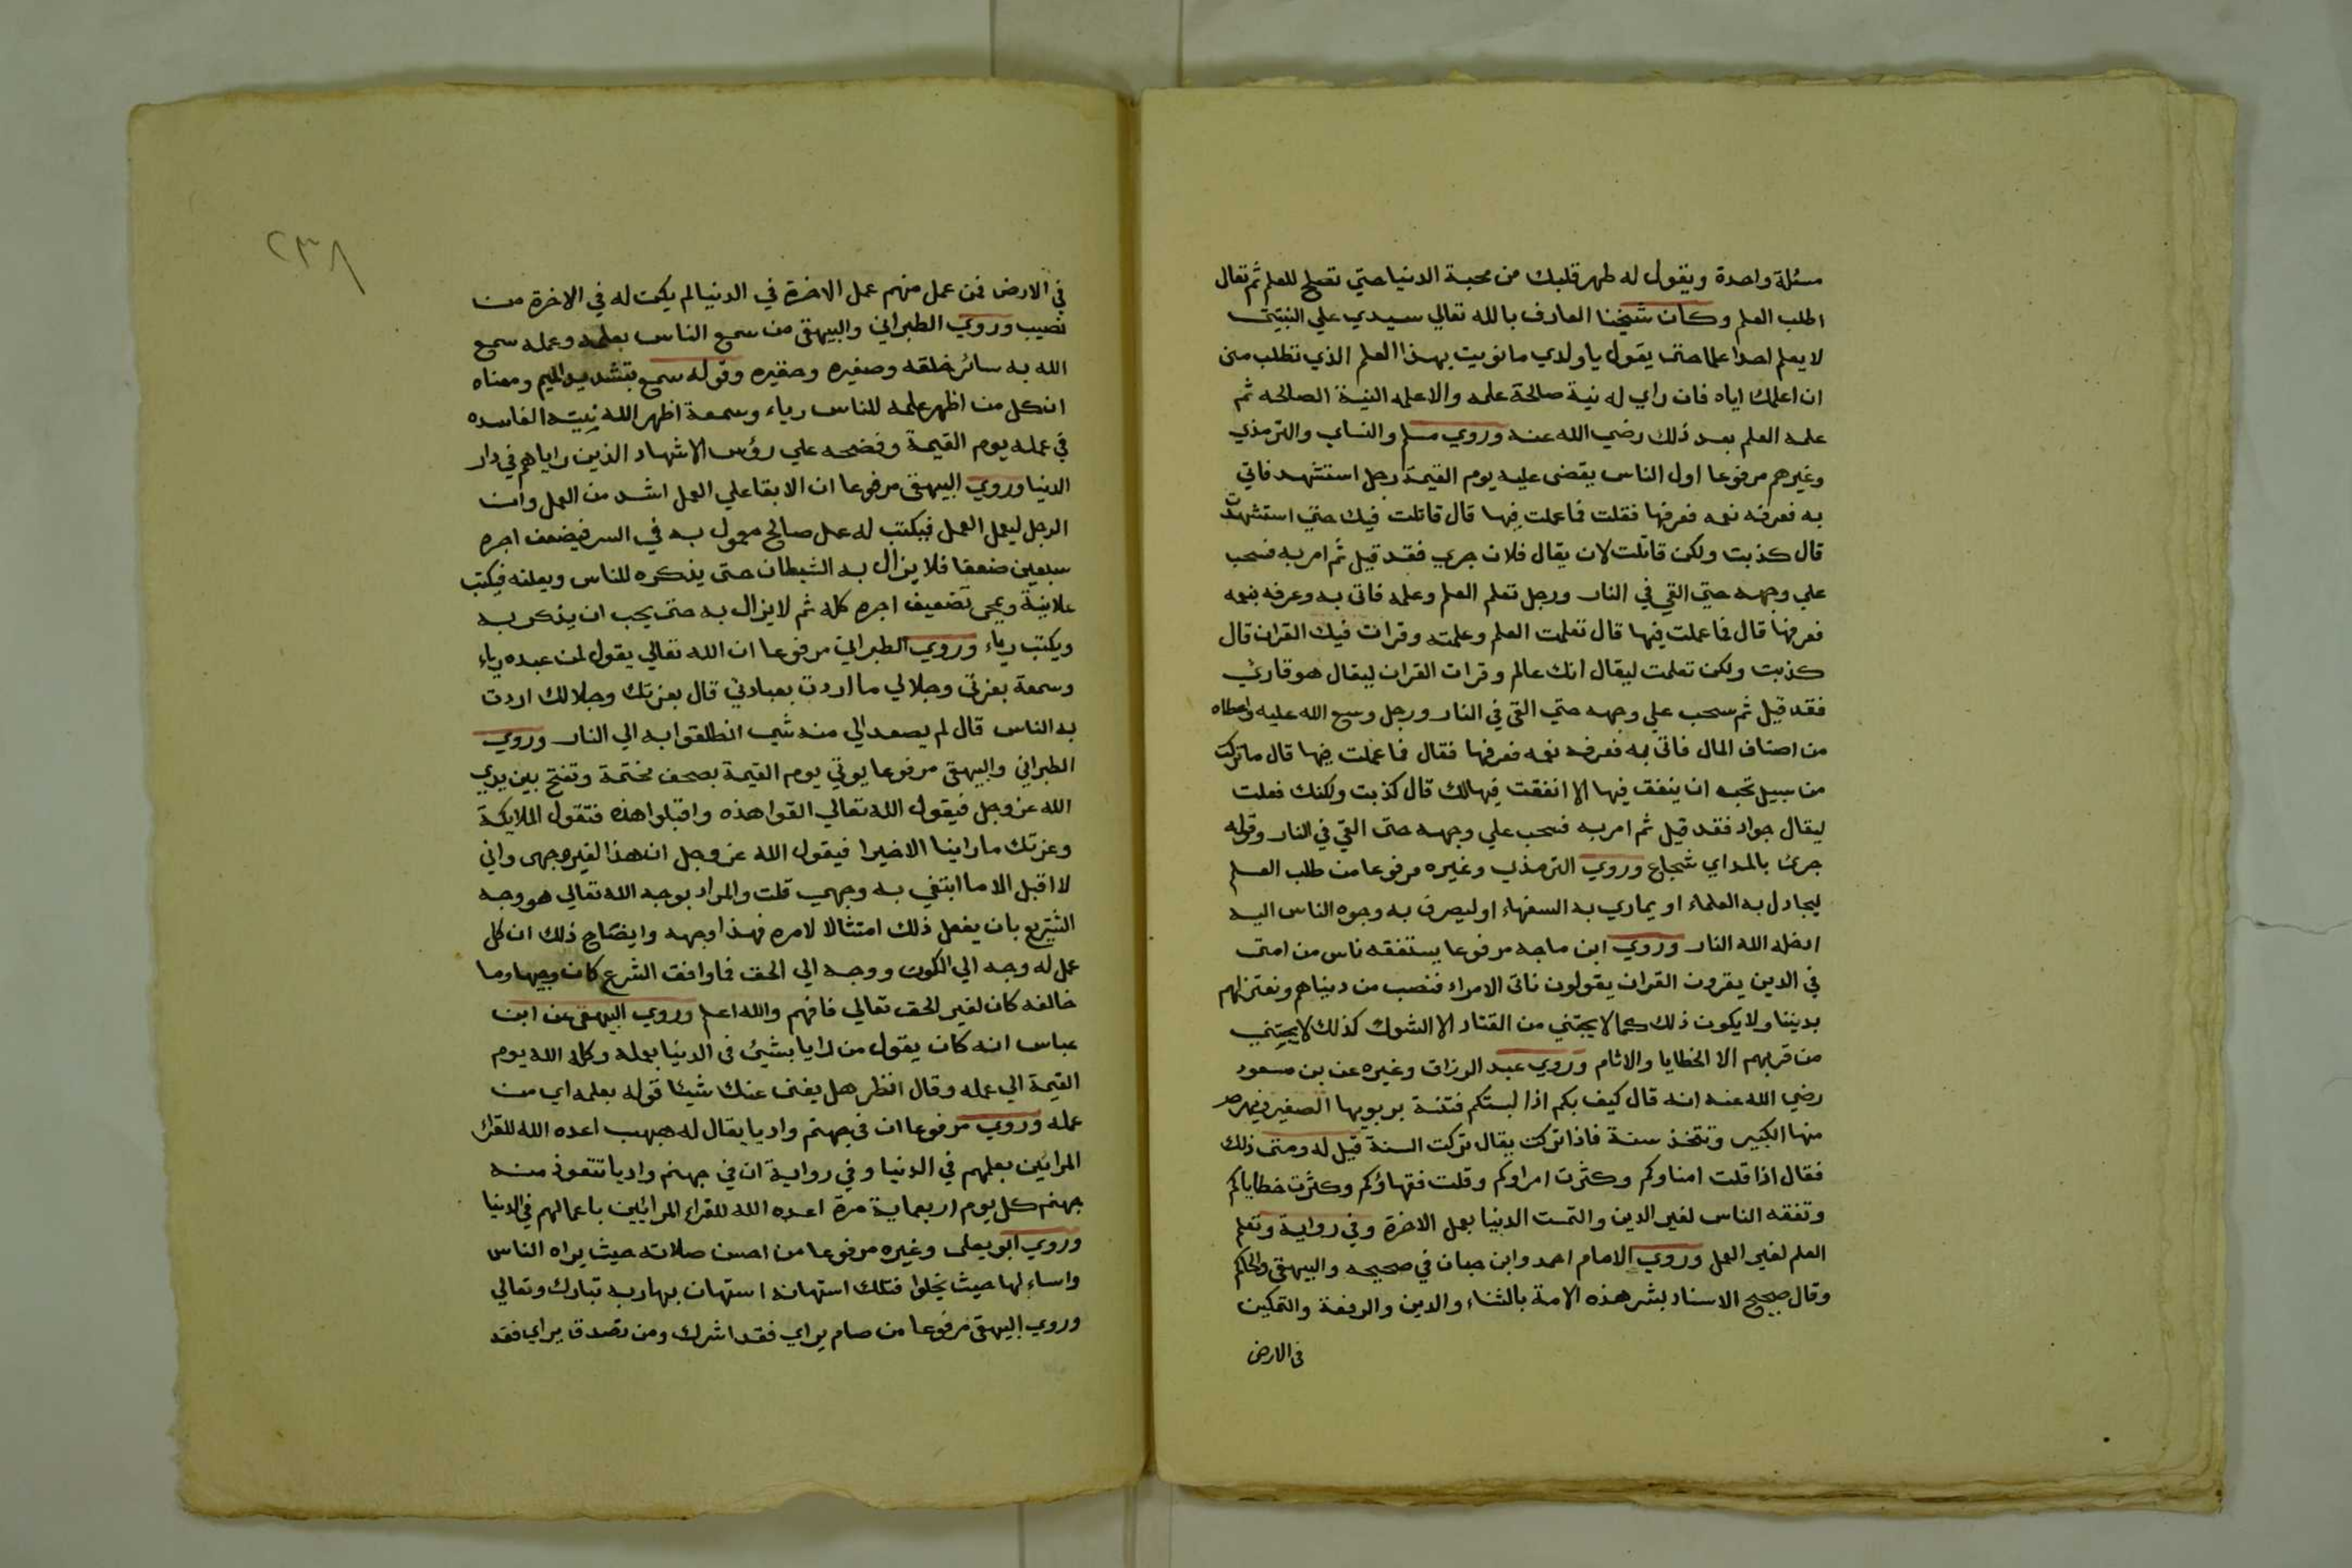 مسئلة واحدة ويقول له طهر قلبك من محبة الدنيا حتي تصلح للعلم ثم تعال
اطلب العلم وكان شيخنا العارف بالله تعالي سيدي علي النبتيتى
لا يعلم احدا علما حتى يقول يا ولدي ما نويت بهذا العلم الذي تطلب منى
ان اعلمك اياه فان راي له نية صالحة علمه والا علمه النية الصالحه ثم
علمه العلم بعد ذلك رضي الله عنه وروي مسلم والنساي والترمذي
وغيرهم مرفوعا اول الناس يقضى عليه يوم القيمة رجل استشهد فاتي
به فعرفه نعمه فعرفها فقلت فما عملت فيها قال قاتلت فيك حتي استشهدت
قال كذبت ولكن قاتلت لان يقال فلان جري فقد قيل ثم امر به فسحب
علي وجهه حتي القي في النار ورجل تعلم العلم وعلمه فاتى به وعرفه نعمه
فعرفها قال فما عملت فيها قال تعلمت العلم وعلمته وقرات فيك القران قال
كذبت ولكن تعلمت ليقال انك عالم وقرات القران ليقال هو قاري
فقد قيل ثم سحب علي وجهه حتي القي في النار ورجل وسع الله عليه واعطاه
من اصناف المال فاتى به فعرفه نعمه فعرفها فقال فما عملت فيها قال ما تركت
من سبيل تحب ان ينفق فيها الا انفقت فيها لك قال كذبت ولكنك فعلت
ليقال جواد فقد قيل ثم امر به فسحب علي وجهه حتى القي في النار وقوله
جرئ بالمد اي شجاع وروي الترمذي وغيره مرفوعا من طلب العلم
ليجادل به العلماء او يماري به السفهاء او ليصرف به وجوه الناس اليه
ادخله الله النار وروي ابن ماجه مرفوعا يستفقه ناس من امتى
في الدين يقرون القران يقولون ناتى الامراء فنصب من دنياهم ونعتزلهم
بديننا ولا يكون ذلك كما لا يجتني من القتاد الا الشوك كذلك لا يجتني
من قربهم الا الخطايا والاثام وروي عبد الرزاق وغيره عن بن مسعود
رضي الله عنه انه قال كيف بكم اذا لبستكم فتنة يربو بها الصغير ويهرم
منها الكبير وتتخذ سنة فاذا تركت يقال تركت السنة قيل له ومتى ذلك
فقال اذا قلت امناوكم وكثرت امراوكم وقلت فقهاؤكم وكثرت خطاياكم
وتفقه الناس لغير الدين والتمست الدنيا بعمل الاخرة وفي رواية وتعلم
العلم لغير العمل وروي الامام احمد وابن حبان في صحيحه والبيهقي والحاكم
وقال صحيح الاسناد بشر هذه الامة بالثناء والدين والرفعة والتمكين
في الارض
٢٣٨
في الارض فمن عمل منهم عمل الاخرة في الدنيا لم يكن له في الاخرة من
نصيب وروي الطبراني والبيهقى من سمع الناس بعلمه وعمله سمع
الله به سائر خلقه وصغيره وحقيره وقوله سمع بتشديد الميم ومعناه
ان كل من اظهر علمه للناس رياء وسمعة اظهر الله نيته الفاسده
في عمله يوم القيمة وفضحه علي رؤس الاشهاد الذين راياهم في دار
الدنيا وروي البيهقى مرفوعا ان الابقا علي العمل اشد من العمل وان
الرجل ليعمل العمل فيكتب له عمل صالح معمول به في السر فيضعف اجره
سبعين ضعفا فلا يزال به الشيطان حتى يذكره للناس ويعلنه فيكتب
علانية ويمحى تضعيف اجره كله ثم لا يزال به حتى يحب ان يذكر به
ويكتب رياء وروي الطبراني مرفوعا ان الله تعالي يقول لمن عبده رياء
وسمعة بعزتي وجلالي ما اردت بعبادتي قال بعزتك وجلالك اردت
به الناس قال لم يصعد الي منه شي انطلقوا به الي النار وروي
الطبراني والبيهقى مرفوعا يوتي يوم القيمة بصحف مختمة وتفتح بين يدي
الله عز وجل فيقول الله تعالي القوا هذه واقبلوا هذه فتقول الملايكة
وعزتك ما راينا الا خيرا فيقول الله عز وجل ان هذا لغير وجهى واني
لا اقبل الا ما ابتغي به وجهي قلت والمراد بوجه الله تعالي هو وجه
التشريع بان يفعل ذلك امتثالا لامره فهذا وجهه وايضاح ذلك ان كل
عمل له وجه الي الكون ووجه الي الحق فما وافق الشرع كان وجيها وما
خالفه كان لغير الحق تعالي فافهم والله اعلم وروي البيهقى عن ابن
عباس انه كان يقول من رايا بشئ في الدنيا بعمله وكله الله يوم
القيمة الي عمله وقال انظر هل يغنى عنك شيئا قوله بعلمه اي من
عمله وروي مرفوعا ان في جهنم واديا يقال له هبهب اعده الله للقراء
المرائين بعلمهم في الدنيا وفي رواية ان في جهنم واديا تتعوذ منه
جهنم كل يوم اربعماية مرة اعده الله للقراء المرائين باعمالهم في الدنيا
وروي ابو يعلى وغيره مرفوعا من احسن صلاته حيث يراه الناس
واساء لها حيث يخلوا فتلك استهانه استهان بها ربه تبارك وتعالي
وروي البيهقى مرفوعا من صام يراي فقد اشرك ومن تصدق يراي فقد